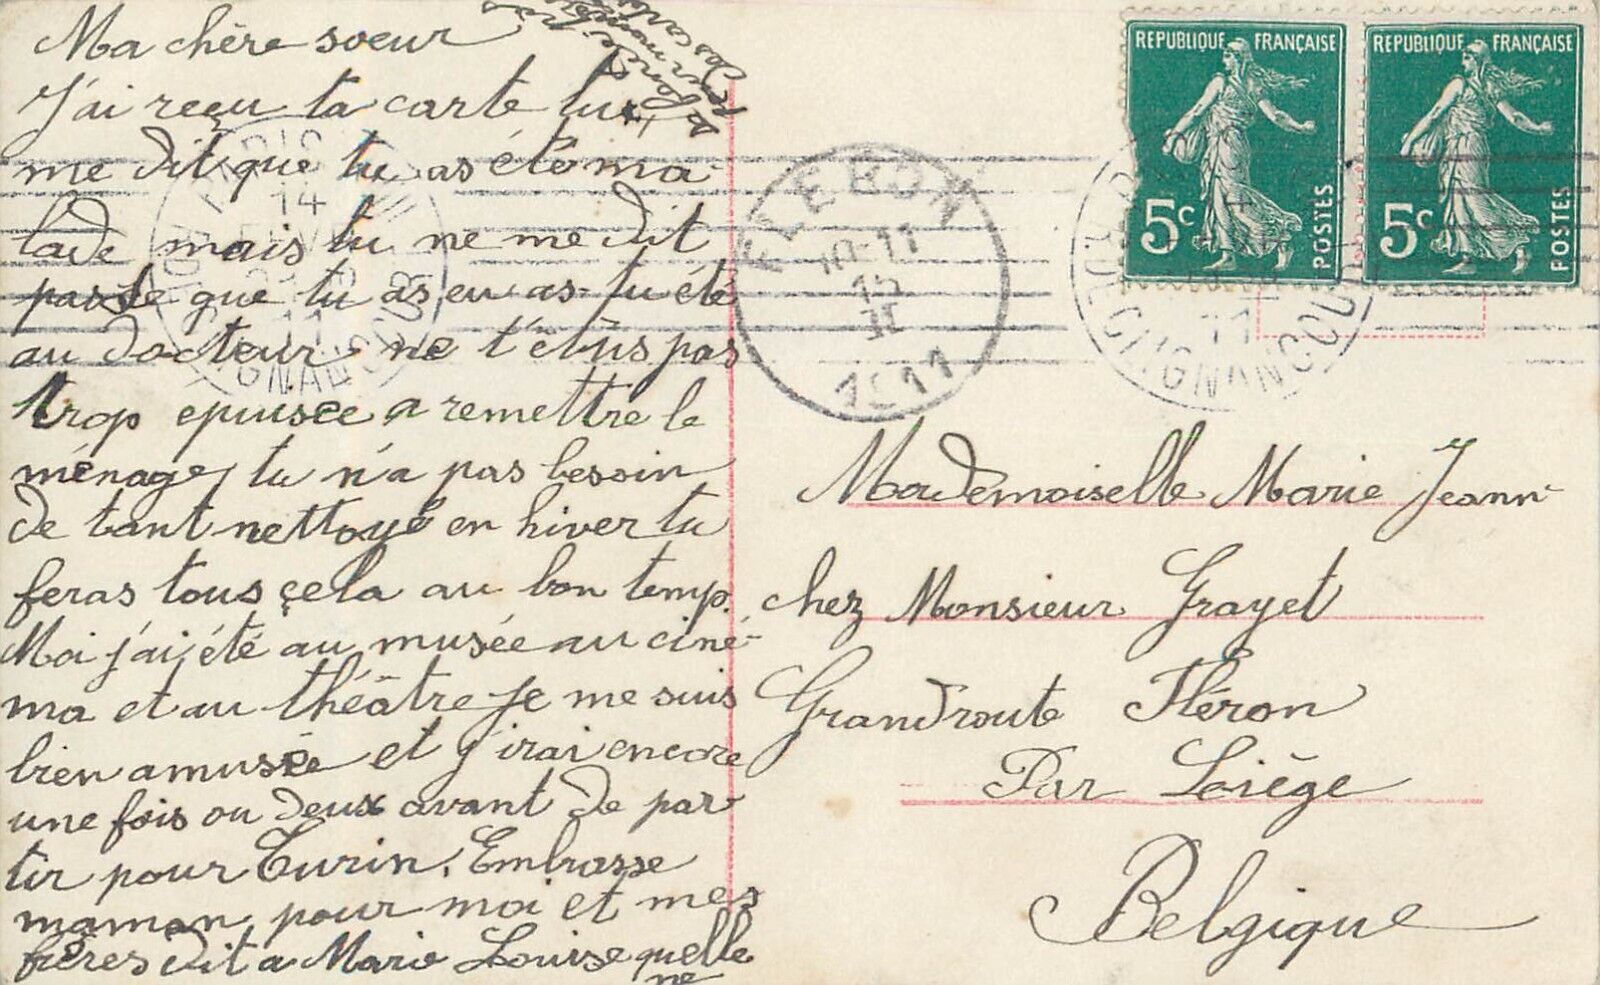 Ma chère soeur
J'ai reçu ta carte tu
me dit que tu as été ma
lade mais tu ne me dit
pas le que tu as eu as-tu été
au docteur, ne t'élus pas
trop epuisée a remettre le
ménage, tu n'a pas besoin
de tant nettoyé en hiver tu
feras tous çela au bon temp.
Moi j'ai été au musée au ciné-
ma et au théâtre je me suis
bien amusée et j'irai encore
une fois ou deux avant de par
tir pour Turin. Embrasse
maman pour moi et mes
frères dit a Marie Louise quelle
ne
REPUBLIQUE FRANÇAISE
5c
POSTES
REPUBLIQUE FRANÇAISE
5c
POSTES
FLERON
10-11
15
II
1911
PARIS
14
11
R. DE CLIGNANCOURT
Mademoiselle Marie Jeann
chez Monsieur Grayet
Grandroute Fléron
Par Liège
Belgique